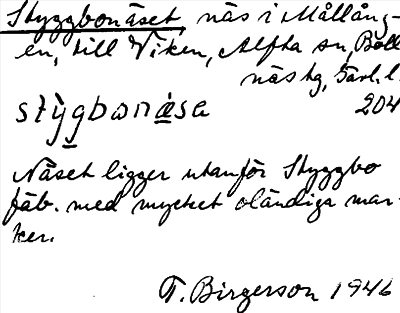 Styggbonäset, näs i Mållång-
en, till Viken, Alfta sn, Boll-
näs tg, Gävl. l.
stỳgbonæ̀sa 204
Näset ligger utanför Styggbo
fäb. med mycket oländiga mar-
ker.
T. Birgerson 1946